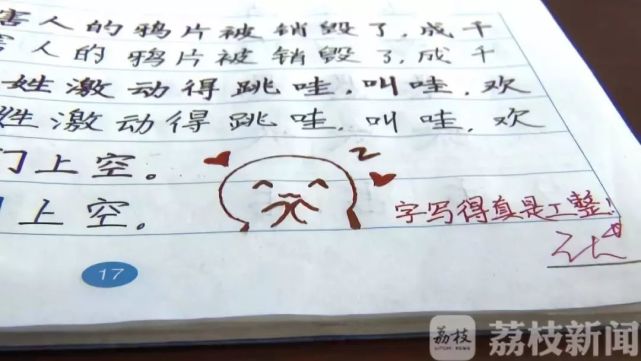 害人的鸦片被销毁了,成千
害人的鸦片被销毁了,成千
姓激动得跳哇,叫哇,欢
姓激动得跳哇,叫哇,欢
门上空。
上空。
字写得真是工整!
17
荔枝 荔枝新闻